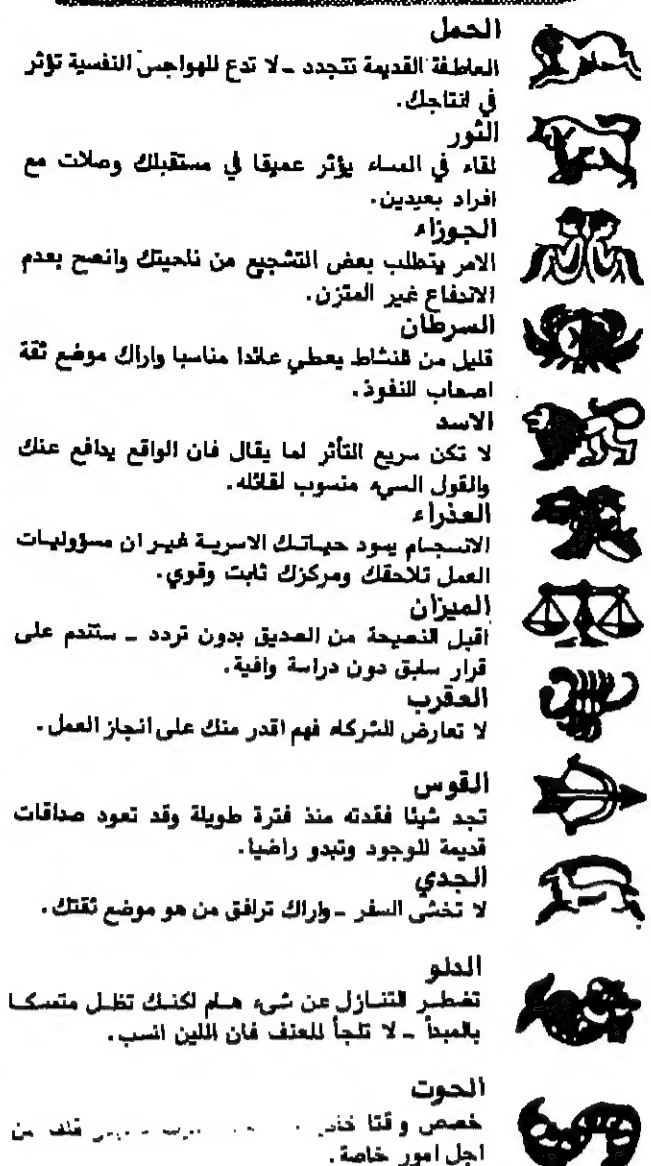 الحمل
العاطفة القديمة تتجدد - لا تدع للهواجس النفسية تؤثر
في انتاجك.
الثور
لقاء في المساء يؤثر عميقا في مستقبلك وصلات مع
افراد بعيدين.
الجوزاء
الامر يتطلب بعض التشجيع من ناحيتك وانصح بعدم
الاندفاع غير المتزن.
السرطان
قليل من النشاط يعطي عائدا مناسبا واراك موضع ثقة
اصحاب النفوذ.
الاسد
لا تكن سريع التأثر لما يقال فان الواقع يدافع عنك
والقول السيء منسوب لقائله.
العذراء
الانسجام يسود حياتك الاسرية غير ان مسؤوليات
العمل تلاحقك ومركزك ثابت وقوي.
الميزان
اقبل النصيحة من الصديق بدون تردد - ستندم على
قرار سابق دون دراسة وافية.
العقرب
لا تعارض الشركاء فهم اقدر منك على انجاز العمل.
القوس
تجد شيئا فقدته منذ فترة طويلة وقد تعود صداقات
قديمة للوجود وتبدو راضيا.
الجدي
لا تخشى السفر - واراك ترافق من هو موضع ثقتك.
الدلو
تضطر التنازل عن شيء هام لكنك تظل متسكا
بالمبدأ - لا تلجأ للعنف فان اللين انسب.
الحوت
خصص وقتا من
اجل امور خاصة.